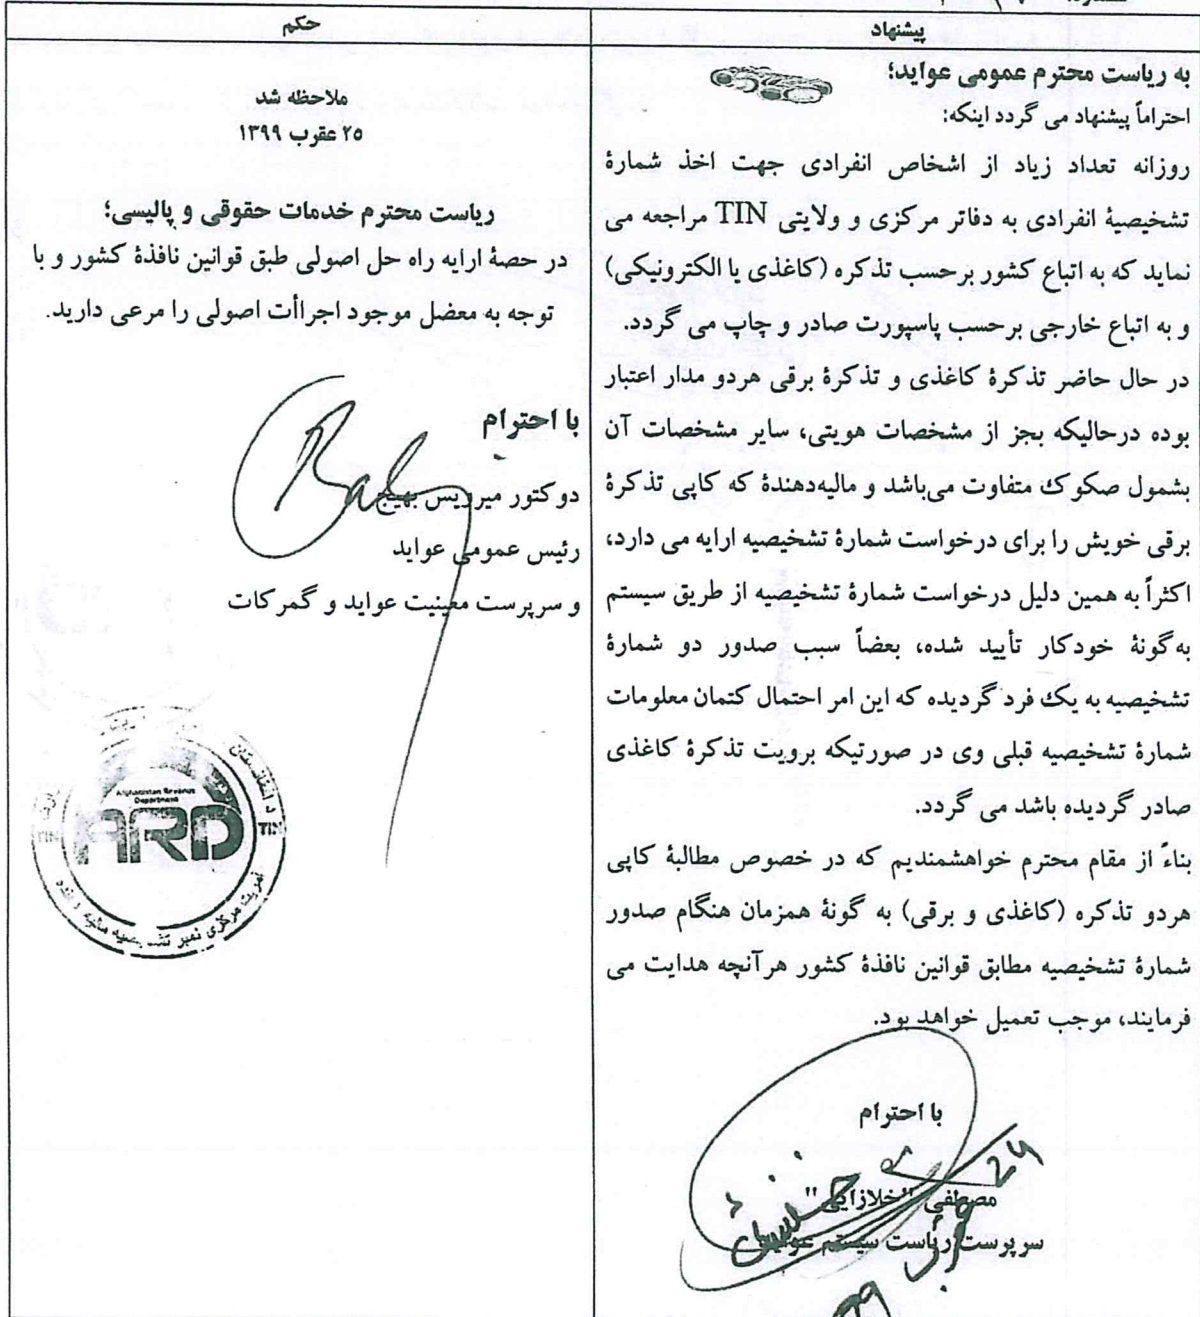 پیشنهاد
به ریاست محترم عمومی عواید؛
احتراماً پیشنهاد می گردد اینکه:
روزانه تعداد زیاد از اشخاص انفرادی جهت اخذ شمارهٔ
تشخیصیهٔ انفرادی به دفاتر مرکزی و ولایتی TIN مراجعه می
نماید که به اتباع کشور برحسب تذکره (کاغذی یا الکترونیکی)
و به اتباع خارجی برحسب پاسپورت صادر و چاپ می گردد.
در حال حاضر تذکرهٔ کاغذی و تذکرهٔ برقی هردو مدار اعتبار
بوده درحالیکه بجز از مشخصات هویتی، سایر مشخصات آن
بشمول صکوک متفاوت می‌باشد و مالیه‌دهندهٔ که کاپی تذکرهٔ
برقی خویش را برای درخواست شمارهٔ تشخیصیه ارایه می دارد،
اکثراً به همین دلیل درخواست شمارهٔ تشخیصیه از طریق سیستم
به‌گونهٔ خودکار تأیید شده، بعضاً سبب صدور دو شمارهٔ
تشخیصیه به یک فرد گردیده که این امر احتمال کتمان معلومات
شمارهٔ تشخیصیه قبلی وی در صورتیکه برویت تذکرهٔ کاغذی
صادر گردیده باشد می گردد.
بناءً از مقام محترم خواهشمندیم که در خصوص مطالبهٔ کاپی
هردو تذکره (کاغذی و برقی) به گونهٔ همزمان هنگام صدور
شمارهٔ تشخیصیه مطابق قوانین نافذهٔ کشور هرآنچه هدایت می
فرمایند، موجب تعمیل خواهد بود.
با احترام
مصطفی "خلازایی"
سرپرست ریاست سیستم عواید
24
99
حکم
ملاحظه شد
۲۵ عقرب ۱۳۹۹
ریاست محترم خدمات حقوقی و پالیسی؛
در حصهٔ ارایه راه حل اصولی طبق قوانین نافذهٔ کشور و با
توجه به معضل موجود اجراأت اصولی را مرعی دارید.
با احترام
دوکتور میرویس بهیج
رئیس عمومی عواید
و سرپرست معینیت عواید و گمرکات
Afghanistan Revenue
Department
ARD
TIN
TIN